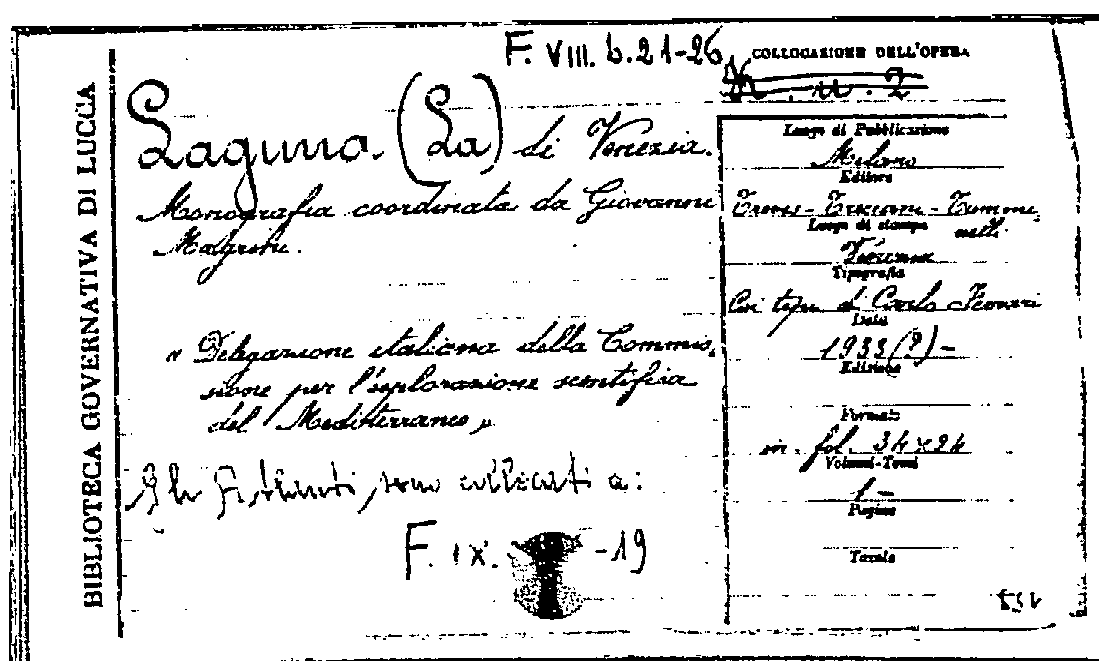 BIBLIOTECA GOVERNATIVA DI LUCCA
F. VIII. b. 21-26
COLLOCAZIONE DELL'OPERA
n. 2
Laguna. (La) di Venezia.
Monografia coordinata da Giovanni
Magrini.
« Delegazione italiana della Commis-
sione per l'esplorazione scentifica
del Mediterraneo »
Gli Atlanti sono collocati a:
F. IX. -19
Luogo di Pubblicazione
Milano
Editore
Treves - Treccani - Tummi-
nelli
Luogo di stampa
Verona
Tipografia
Coi tipi di Carlo Ferrari
Data
1933 (?) -
Edizione
Formato
in. fol. 34x24
Volumi-Tomi
1 -
Pagine
Tavole